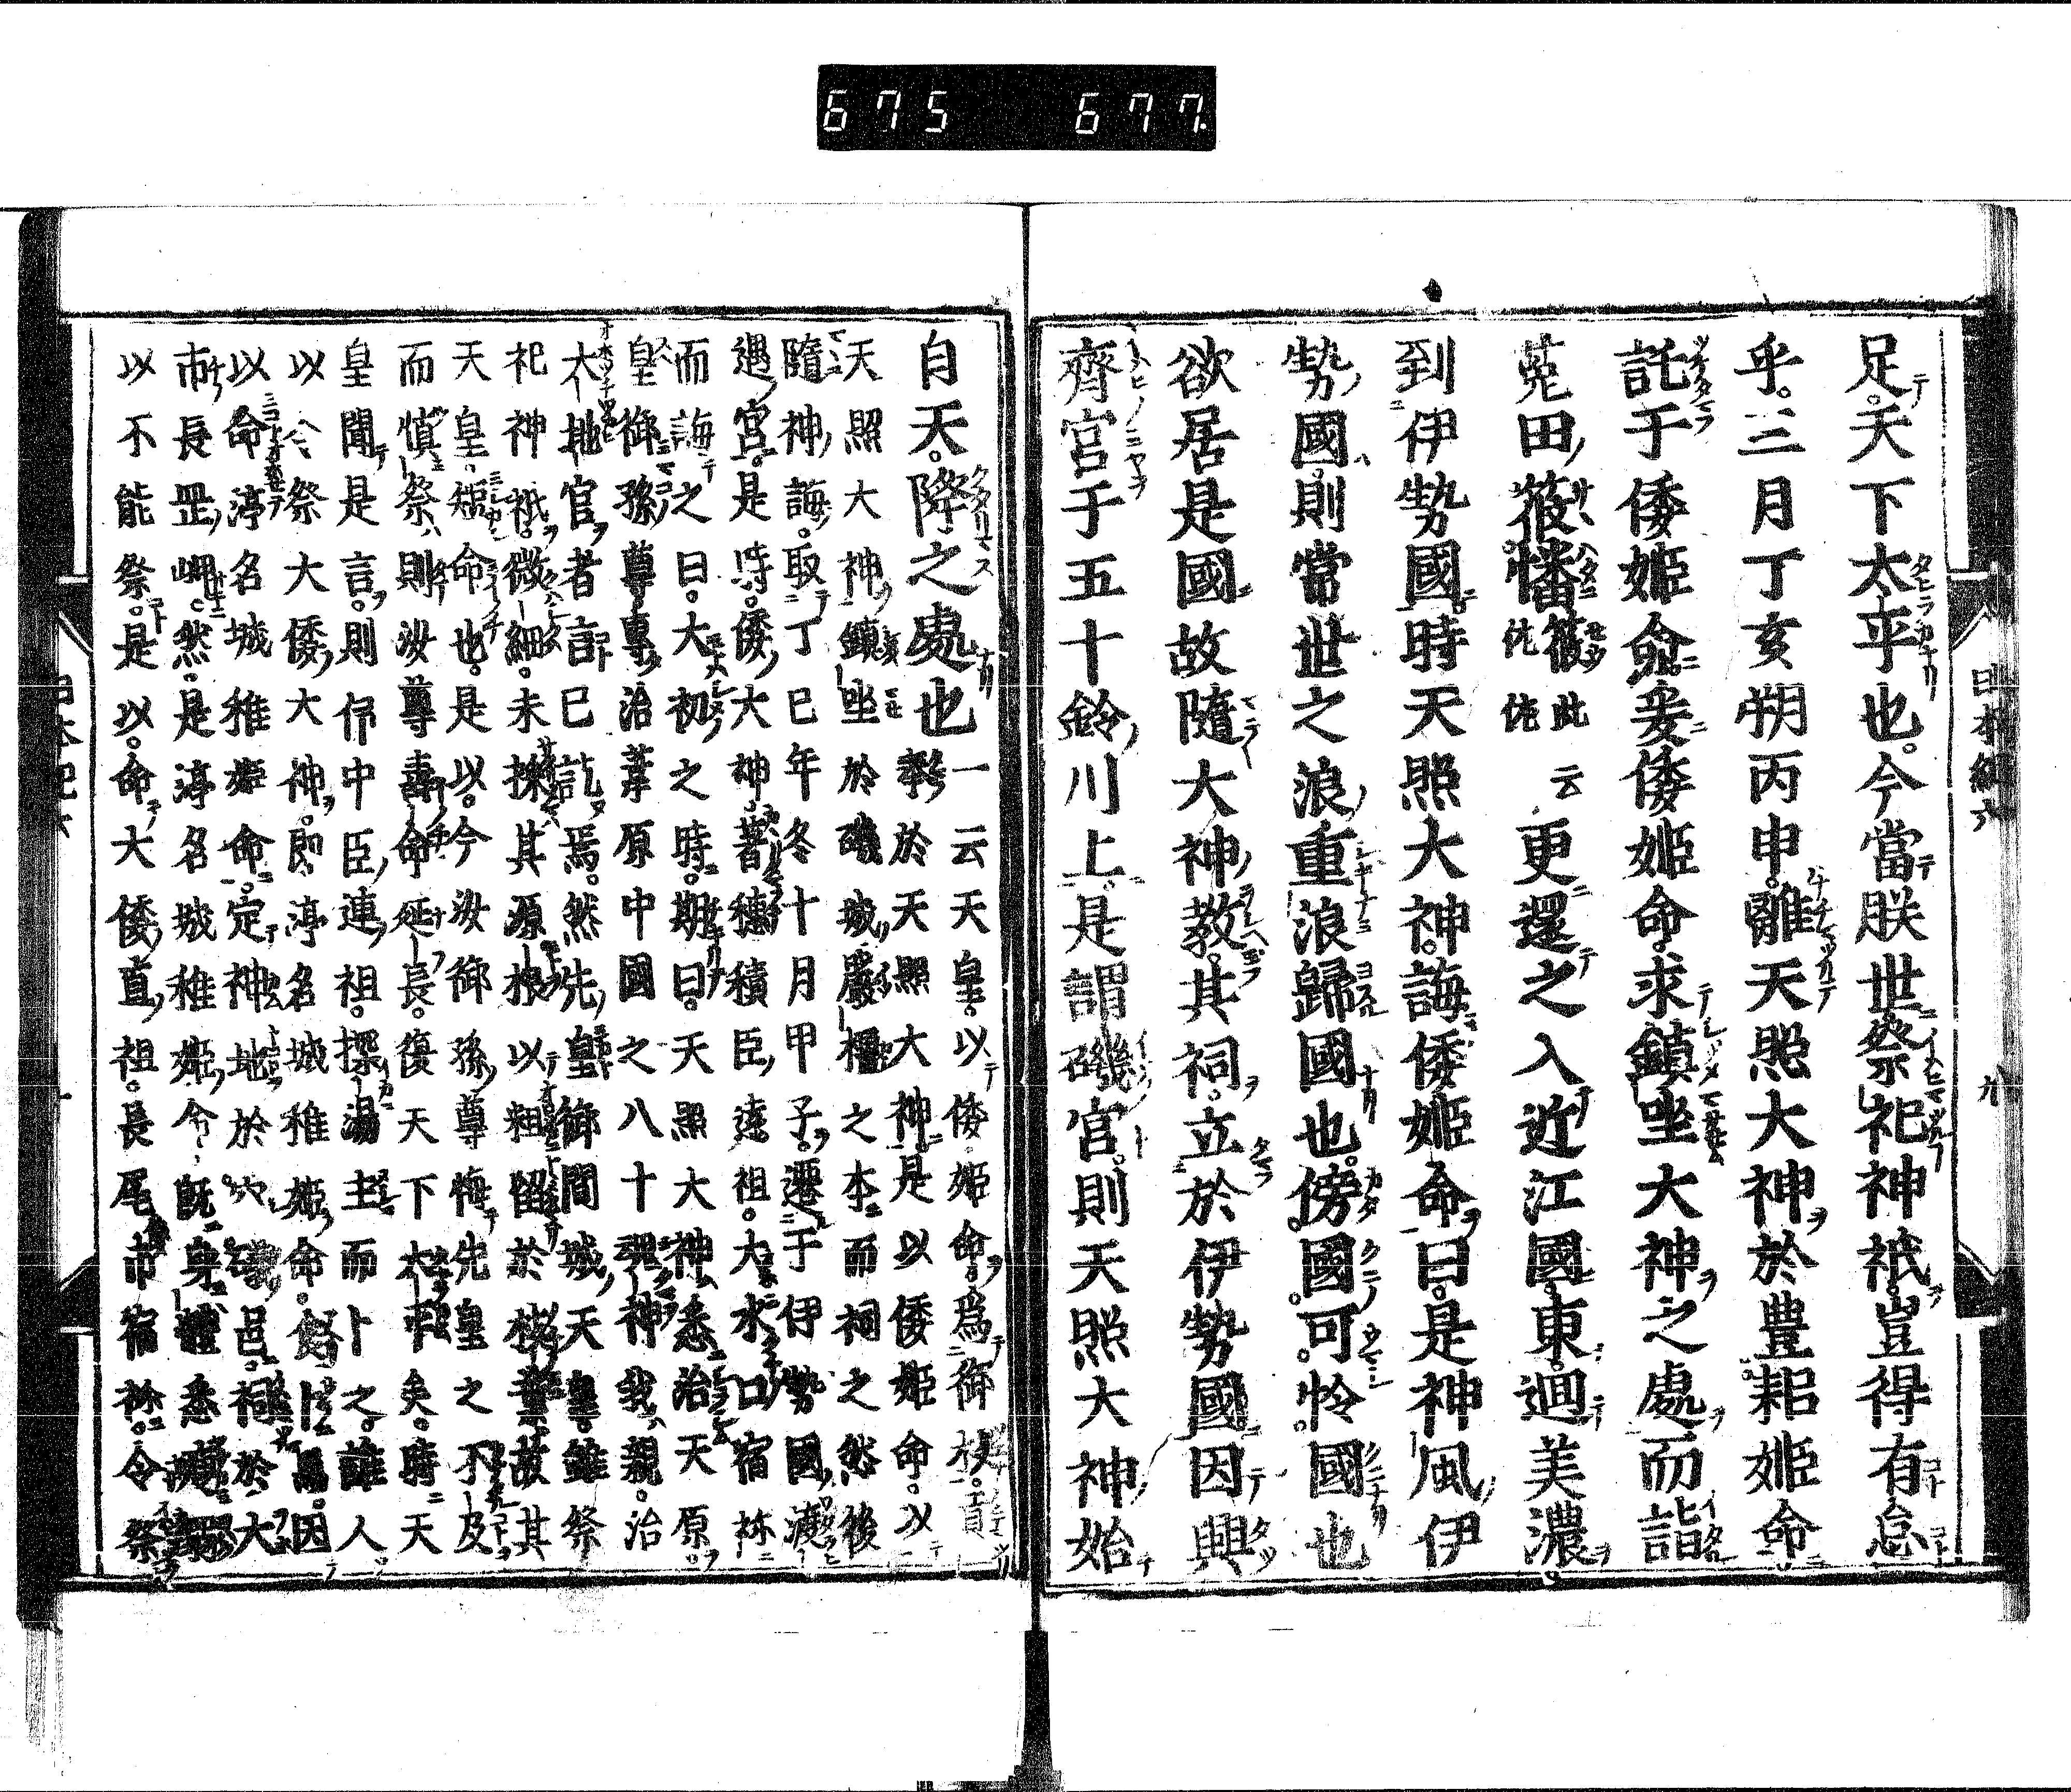 675 677.
日本紀六 九
足天下太平也今當朕世祭祀神祇豈得有怠
乎三月丁亥朔丙申離天照大神於豊耜姫命
託于倭姫命爰倭姫命求鎮坐大神之處而詣
菟田筱幡筱此云佐佐更還之入近江國東廻美濃
到伊勢國時天照大神誨倭姫命曰是神風伊
勢國則常世之浪重浪歸國也傍國可怜國也
欲居是國故隨大神教其祠立於伊勢國因興
齊宮于五十鈴川上是謂磯宮則天照大神始
自天降之處也一云天皇以倭姫命爲御杖貢
奉於天照大神是以倭姫命以
天照大神鎮坐於磯城嚴橿之本而祠之然後
隨神誨取丁巳年冬十月甲子遷于伊勢國渡
遇宮是時倭大神著穂積臣遠祖大水口宿祢
而誨之曰大初之時期曰天照大神悉治天原
皇御孫尊專治葦原中國之八十魂神我親治
大地官者言已訖焉然先皇御間城天皇雖祭
祀神祇微細未探其源根以粗留於枝葉故其
天皇短命也是以今汝御孫尊悔先皇之不及
而慎祭則汝尊壽命延長復天下太平矣時天
皇聞是言則仰中臣連祖探湯主而卜之誰人
以令祭大倭大神即渟名城稚姫命食卜焉因
以命渟名城稚姫命定神地於穴磯邑祠於大
市長岡岬然是渟名城稚姫命既身體悉痩弱
以不能祭是以命大倭直祖長尾市宿祢令祭